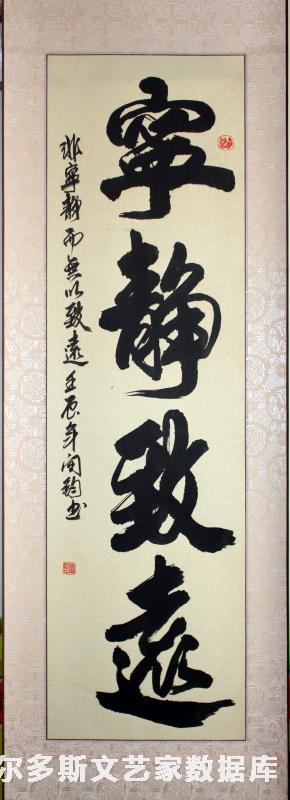 寧靜致遠
非寧靜而無以致遠壬辰年閏鈞书
尔多斯文艺家数据库